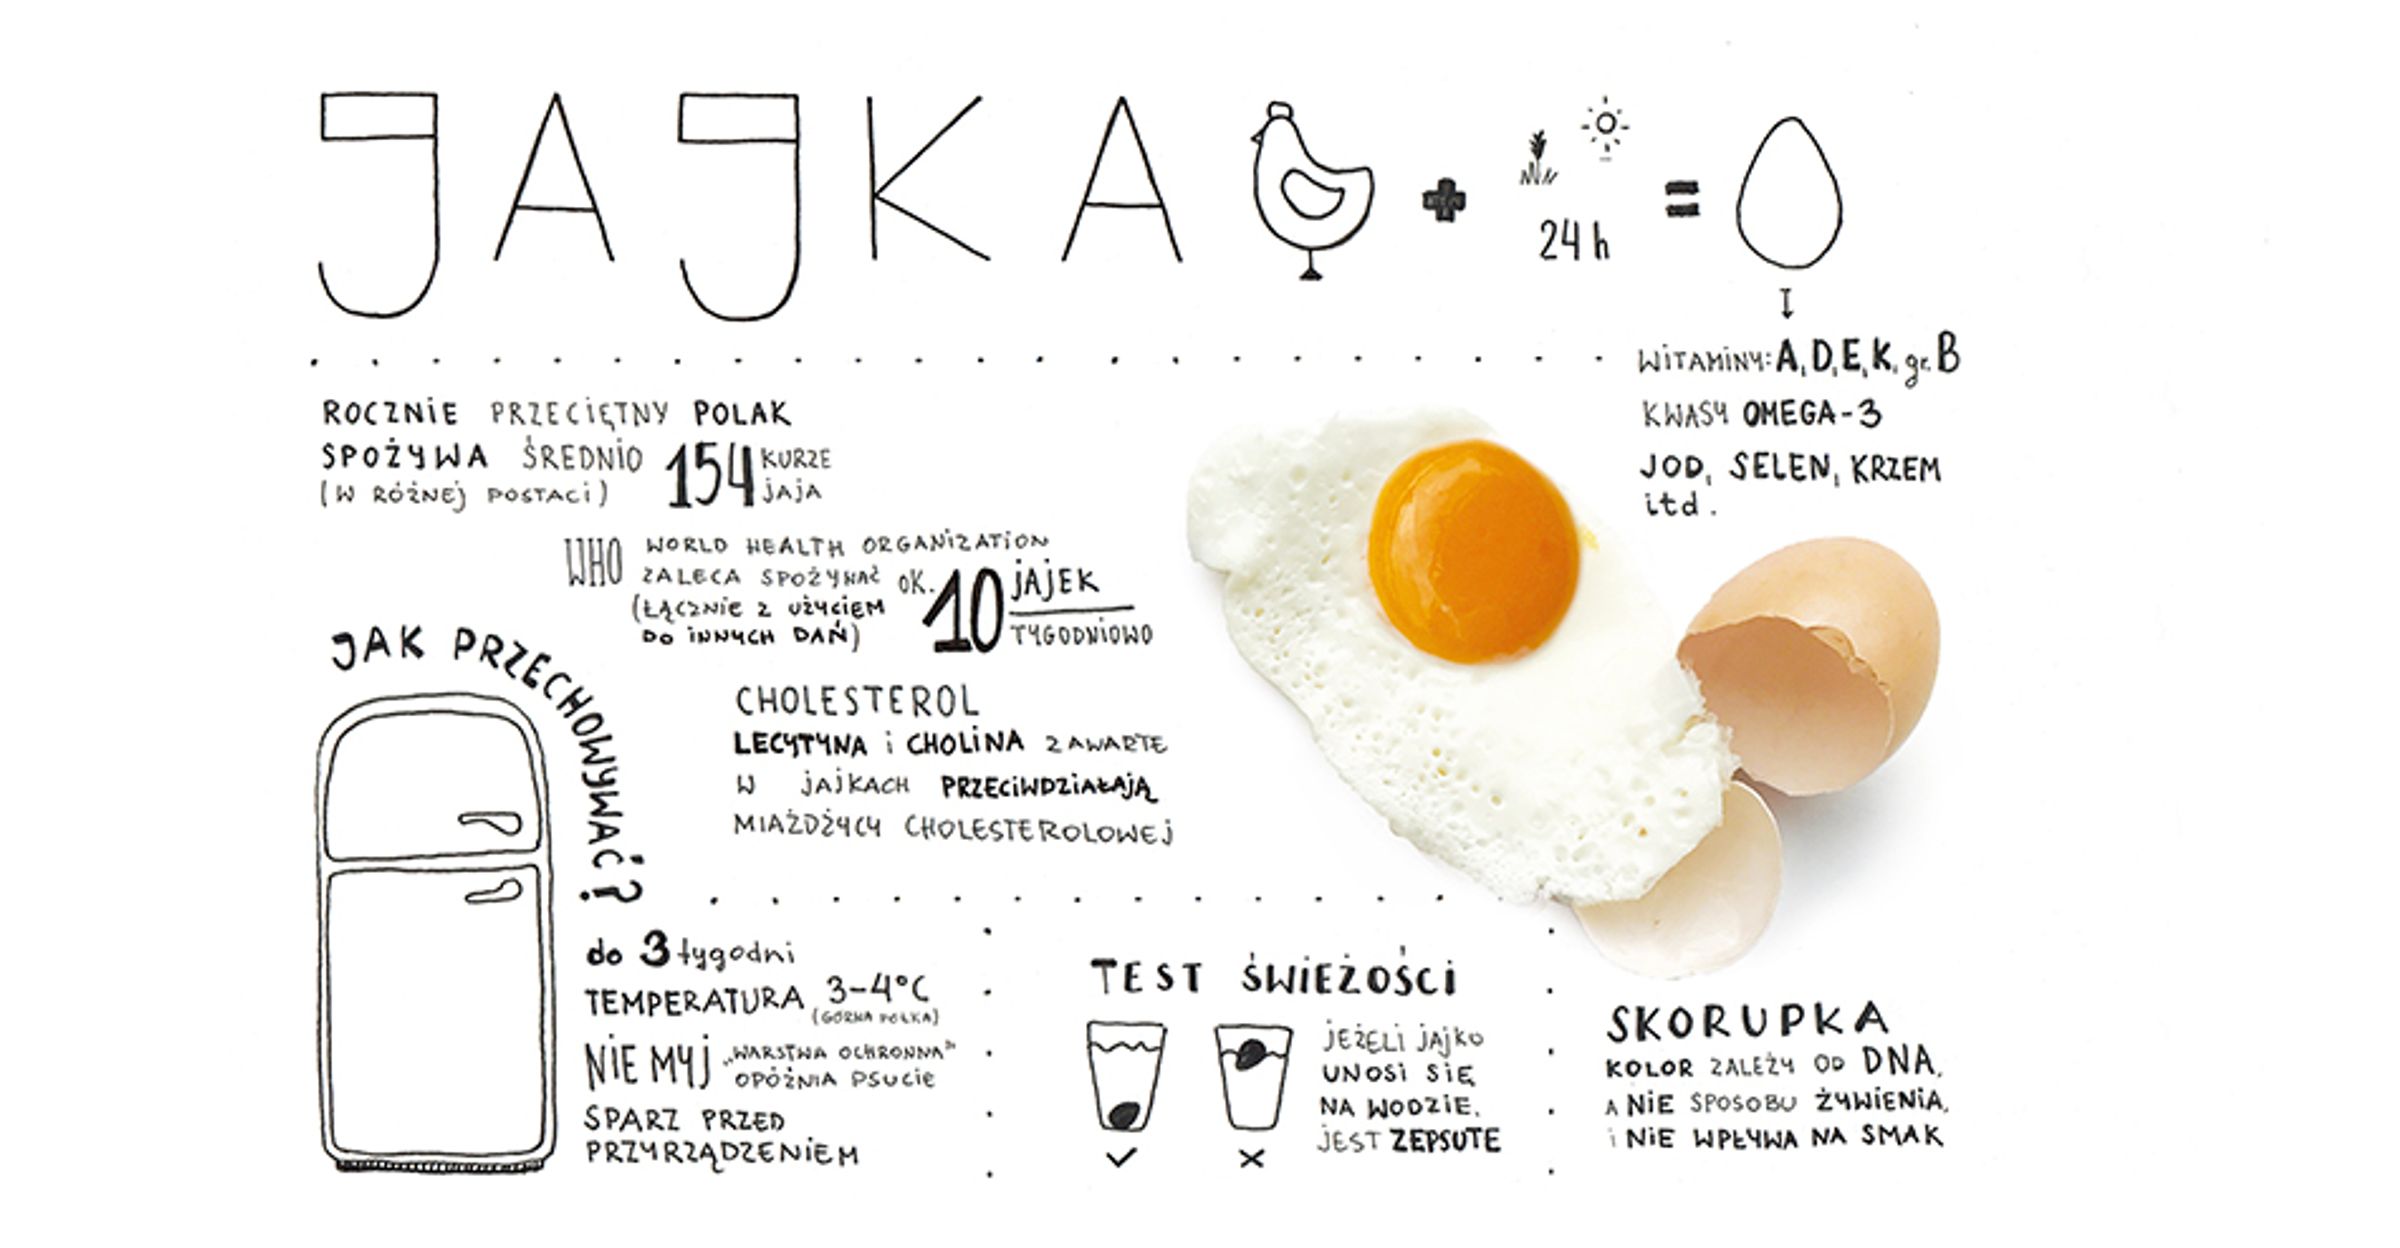 JAJKA
24 h
WITAMINY: A, D, E, K, gr. B
KWASY OMEGA-3
JOD, SELEN, KRZEM
itd.
ROCZNIE PRZECIĘTNY POLAK
SPOŻYWA ŚREDNIO 154 KURZE JAJA
(W RÓŻNEJ POSTACI)
WHO WORLD HEALTH ORGANIZATION
ZALECA SPOŻYWAĆ OK. 10 JAJEK TYGODNIOWO
(ŁĄCZNIE Z UŻYCIEM
DO INNYCH DAŃ)
CHOLESTEROL
LECYTYNA i CHOLINA ZAWARTE
W JAJKACH PRZECIWDZIAŁAJĄ
MIAŻDŻYCY CHOLESTEROLOWEJ
JAK PRZECHOWYWAĆ?
do 3 tygodni
TEMPERATURA 3-4°C
(GÓRNA PÓŁKA)
NIE MYJ „WARSTWA OCHRONNA"
OPÓŹNIA PSUCIE
SPARZ PRZED
PRZYRZĄDZENIEM
TEST ŚWIEŻOŚCI
JEŻELI JAJKO
UNOSI SIĘ
NA WODZIE,
JEST ZEPSUTE
SKORUPKA
KOLOR ZALEŻY OD DNA,
A NIE SPOSOBU ŻYWIENIA,
i NIE WPŁYWA NA SMAK